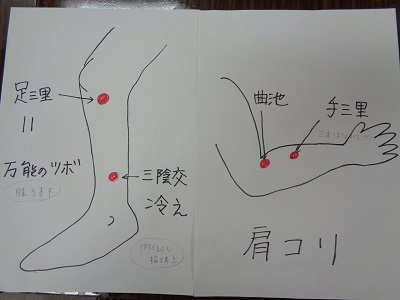 足三里
||
万能のツボ
三陰交
冷え
曲池
手三里
肩コリ